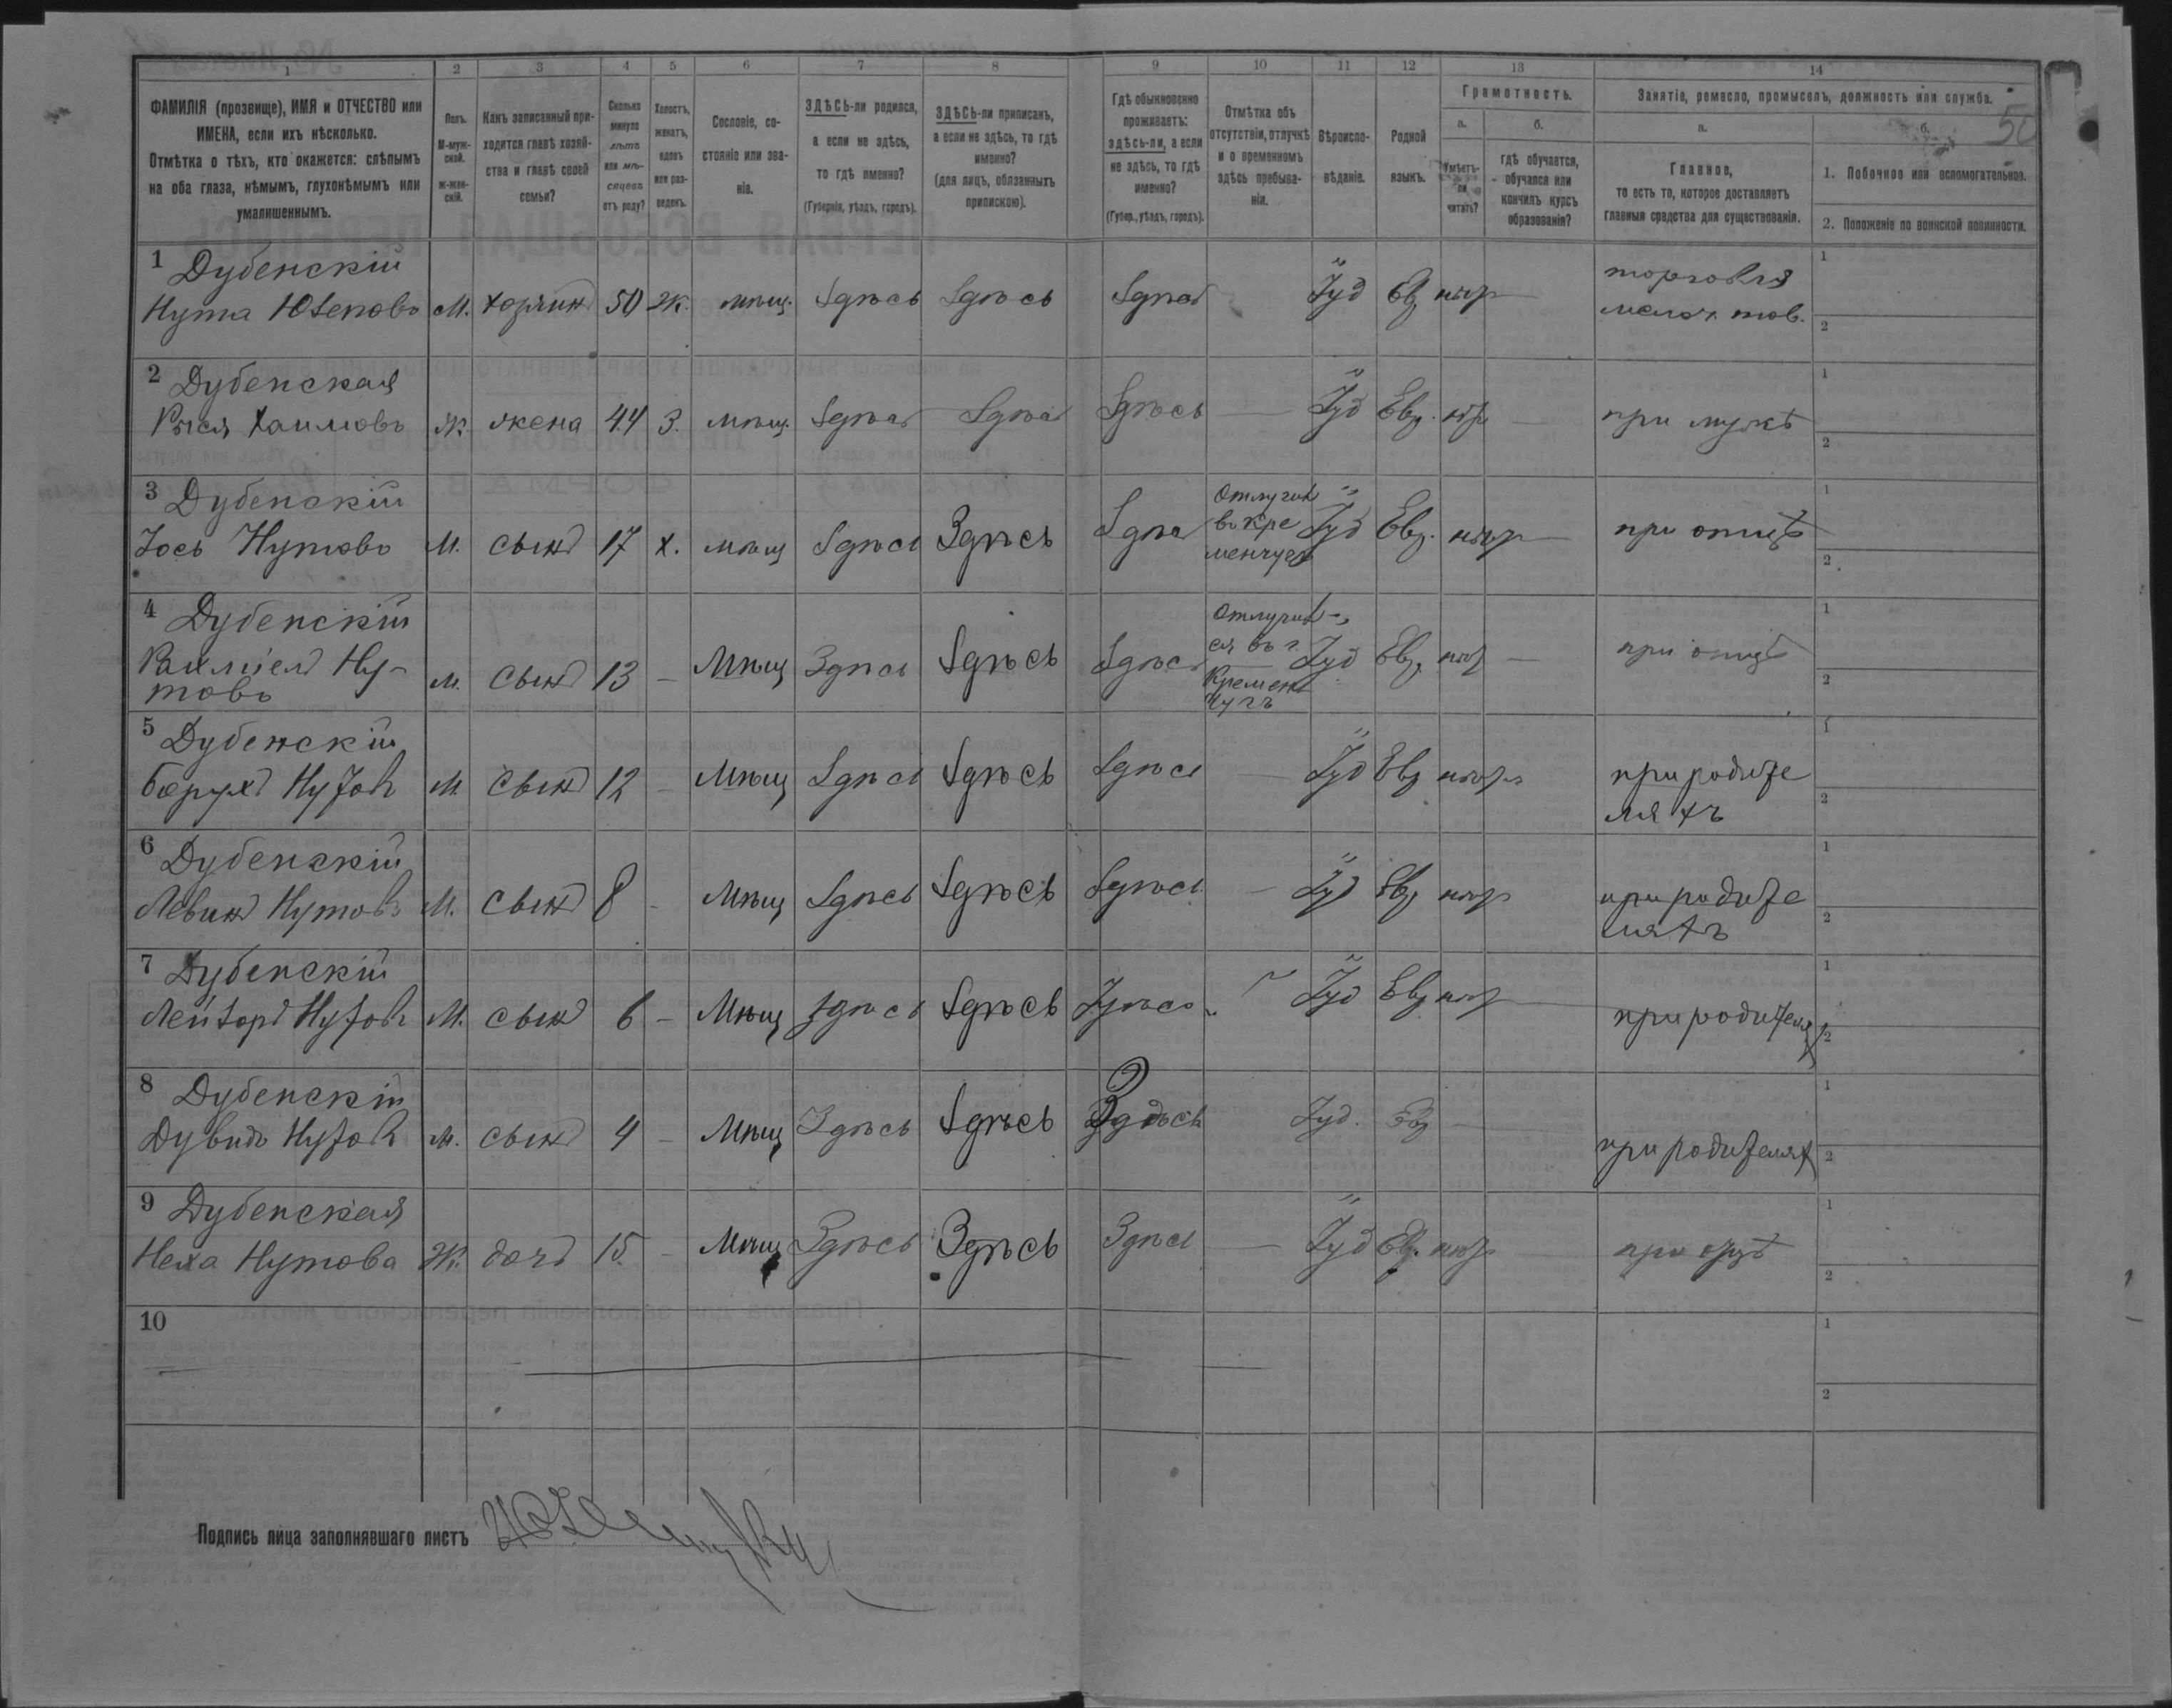 1 2 3 4 5 6 7 8 9 10 11 12 13 14
ФАМИЛІЯ (прозвище), ИМЯ и ОТЧЕСТВО или
ИМЕНА, если ихъ нѣсколько.
Отмѣтка о тѣхъ, кто окажется: слѣпымъ
на оба глаза, нѣмымъ, глухонѣмымъ или
умалишеннымъ.
Полъ.
М-муж-
ской.
ж-жен-
скій.
Какъ записанный при-
ходится главѣ хозяй-
ства и главѣ своей
семьи?
Сколько
минуло
лѣтъ
или мѣ-
сяцевъ
отъ роду?
Холостъ,
женатъ,
вдовъ
или раз-
веденъ.
Сословіе, со-
стояніе или зва-
ніе.
ЗДѢСЬ-ли родился,
а если не здѣсь,
то гдѣ именно?
(Губернія, уѣздъ, городъ).
ЗДѢСЬ-ли приписанъ,
а если не здѣсь, то гдѣ
именно?
(для лицъ, обязанныхъ
припискою).
Гдѣ обыкновенно
проживаетъ:
здѣсь-ли, а если
не здѣсь, то гдѣ
именно?
(Губер., уѣздъ, городъ).
Отмѣтка объ
отсутствіи, отлучкѣ
и о временномъ
здѣсь пребыва-
ніи.
Вѣроиспо-
вѣданіе.
Родной
языкъ.
Грамотность.
а.
Умѣетъ-
ли
читать?
б.
гдѣ обучается,
обучался или
кончилъ курсъ
образованія?
Занятіе, ремесло, промыселъ, должность или служба.
50
а.
Главное,
то есть то, которое доставляетъ
главныя средства для существованія.
б.
1. Побочное или вспомогательное.
2. Положеніе по воинской повинности.
1 Дубенскій торговля 1
Нута Юзеповъ М. хозяинъ 50 ж. мѣщ. Здѣсь Здѣсь Здѣсь Іуд Евр негр мелоч. тов. 2
2 Дубенская 1
Рыся Хаимовъ Ж. жена 44 З. мѣщ. Здѣсь Здѣсь Здѣсь — Іуд Евр. нгр — при мужѣ 2
3 Дубенскій Отлучил 1
Іось Нутовъ М. сынъ 17 х. мѣщ Здѣсь Здѣсь Здѣсь въ Кре Іуд Евр. негр — при отцѣ
менчугъ 2
4 Дубенскій Отлучил- 1
Рахміелъ Ну- ся въ г. при отцѣ
товъ м. сынъ 13 — Мѣщ Здѣсь Здѣсь Здѣсь Іуд Евр. негр — 2
Кремен
чугъ
5 Дубенскій 1
Борухъ Нутовъ М. сынъ 12 — Мѣщ Здѣсь Здѣсь Здѣсь — Іуд Евр негр при родите
ляхъ 2
6 Дубенскій 1
Левинъ Нутовъ М. сынъ 8 — Мѣщ Здѣсь Здѣсь Здѣсь — Іуд Евр негр при родите
ляхъ 2
7 Дубенскій 1
Лейзоръ Нутовъ М. сынъ 6 — Мѣщ Здѣсь Здѣсь Здѣсь Іуд Евр негр — при родителях 2
8 Дубенскій 1
Дувидъ Нутовъ М. сынъ 4 — Мѣщ Здѣсь Здѣсь Здѣсь Іуд. Евр — при родителях 2
9 Дубенская 1
Неха Нутова Ж. дочь 15. — Мѣщ Здѣсь Здѣсь Здѣсь — Іуд Евр. негр при отцѣ 2
10 1
2
Подпись лица заполнявшаго листъ